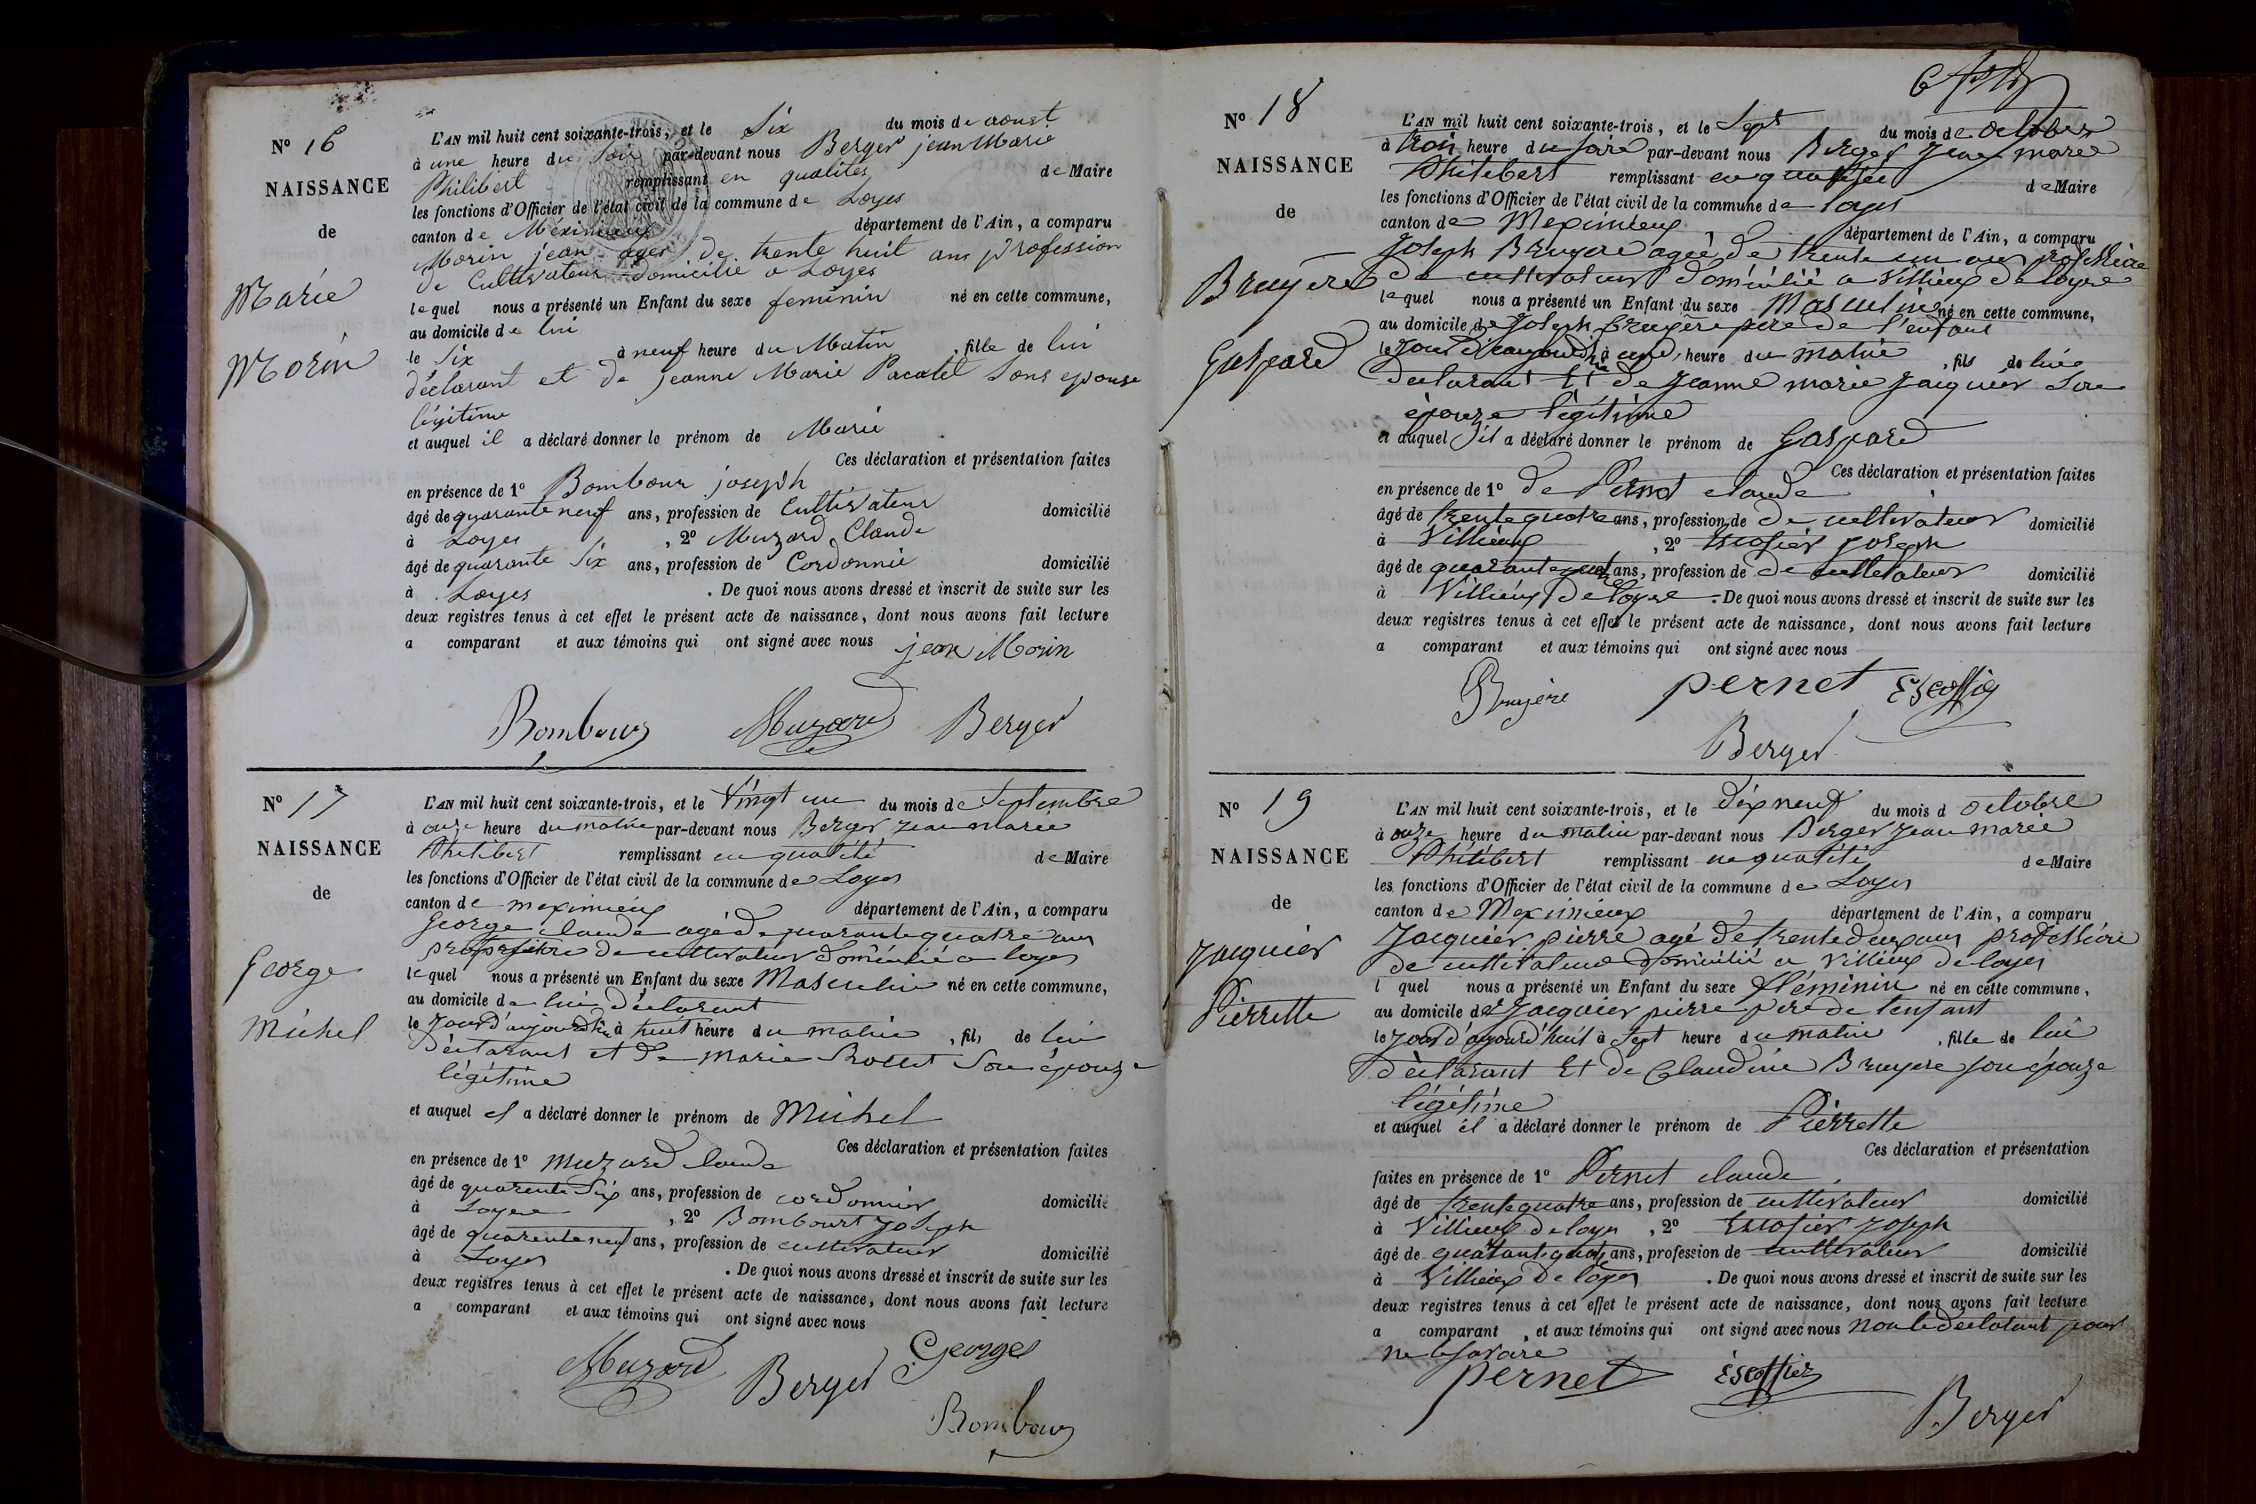 N° 16
NAISSANCE
de
Marie
Morin
L'AN mil huit cent soixante-trois, et le Six du mois de aoust
à une heure du soir par-devant nous Berger jean Marie
Philibert remplissant en qualités de Maire
les fonctions d'Officier de l'état civil de la commune de Loyes
canton de Meximieux département de l'Ain, a comparu
Morin jean ager de trente huit ans profession
de Cultivateur domicilié a Loyes
lequel nous a présenté un Enfant du sexe feminin né en cette commune,
au domicile de lui
le Six à neuf heure du Matin , fille de lui
déclarant et de jeanne Marie Pacalet Sons epouse
légitime
et auquel il a déclaré donner le prénom de Marie
Ces déclaration et présentation faites
en présence de 1° Bombour joseph
âgé de quarante neuf ans, profession de Cultivateur domicilié
à Loyes , 2° Muzard Claude
âgé de quarante Six ans, profession de Cordonnié domicilié
à Loyes . De quoi nous avons dressé et inscrit de suite sur les
deux registres tenus à cet effet le présent acte de naissance, dont nous avons fait lecture
a comparant et aux témoins qui ont signé avec nous jean Morin
Bombour Muzard Berger
N° 17
NAISSANCE
de
George
Michel
L'AN mil huit cent soixante-trois, et le Vingt un du mois de Septembre
à onze heure du matin par-devant nous Berger jean marie
Philibert remplissant en qualité de Maire
les fonctions d'Officier de l'état civil de la commune de Loyes
canton de meximieux département de l'Ain, a comparu
George claude agé de quarante quatre ans
de cultivateur domicilié a loyes
lequel nous a présenté un Enfant du sexe Masculin né en cette commune,
au domicile de lui déclarant
le jour d'aujourdhui à huit heure du matin , fils de lui
déclarant et de marie Son épouze
légitime
et auquel il a déclaré donner le prénom de Michel
Ces déclaration et présentation faites
en présence de 1° muzard claude
âgé de quarente Six ans, profession de cordonnier domicilié
à Loyes , 2° Bombourt joseph
âgé de quarente neuf ans, profession de cultivateur domicilié
à Loyes . De quoi nous avons dressé et inscrit de suite sur les
deux registres tenus à cet effet le présent acte de naissance, dont nous avons fait lecture
a comparant et aux témoins qui ont signé avec nous
Muzard Berger Georges
Bombour
N° 18
NAISSANCE
de
Bruyère
Gaspard
L'AN mil huit cent soixante-trois, et le Sept du mois de octobre
à trois heure du soire par-devant nous Berger jean marie
Philibert remplissant en qualité de Maire
les fonctions d'Officier de l'état civil de la commune de loyes
canton de Meximieux département de l'Ain, a comparu
Joseph Bruyere ageé de trente un ans
de cultivateur domicilié a Villieux de loyes
lequel nous a présenté un Enfant du sexe Masculin né en cette commune,
au domicile de joseph bruyère pere de l'enfant
le jour à une heure du matin , fils de lui
déclarant Et de jeanne marie jacquier Son
épouze légitime
et auquel il a déclaré donner le prénom de Gaspard
Ces déclaration et présentation faites
en présence de 1° de Pernet claude
âgé de trente quatre ans, profession de de cultivateur domicilié
à Villieux , 2° Escofier joseph
âgé de ans, profession de de cultivateur domicilié
à Villieux de loyes . De quoi nous avons dressé et inscrit de suite sur les
deux registres tenus à cet effet le présent acte de naissance, dont nous avons fait lecture
a comparant et aux témoins qui ont signé avec nous
Bruyère pernet Escoffier
Berger
N° 19
NAISSANCE
de
jacquier
Pierrette
L'AN mil huit cent soixante-trois, et le dix neuf du mois d octobre
à onze heure du matin par-devant nous Berger jean marie
Philibert remplissant en qualité de Maire
les fonctions d'Officier de l'état civil de la commune de Loyes
canton de Meximieux département de l'Ain, a comparu
jacquier pierre agé de trente deux ans professione
de cultivateur domicilié a Villieux de loyes
l quel nous a présenté un Enfant du sexe féminin né en cette commune,
au domicile de jacquier pierre pere de l'enfant
le jour d'aujourd'huit à Sept heure du matin , fille de lui
déclarant Et de Claudine Bruyere son épouze
légitime
et auquel il a déclaré donner le prénom de Pierrette
Ces déclaration et présentation
faites en présence de 1° Pernet claude
âgé de trente quatre ans, profession de cultivateur domicilié
à Villieux de loyes , 2° Escofier joseph
âgé de ans, profession de cultivateur domicilié
à Villieux de loyes . De quoi nous avons dressé et inscrit de suite sur les
deux registres tenus à cet effet le présent acte de naissance, dont nous avons fait lecture
a comparant , et aux témoins qui ont signé avec nous non le déclarant pour
ne le savoire
pernet Escoffier
Berger